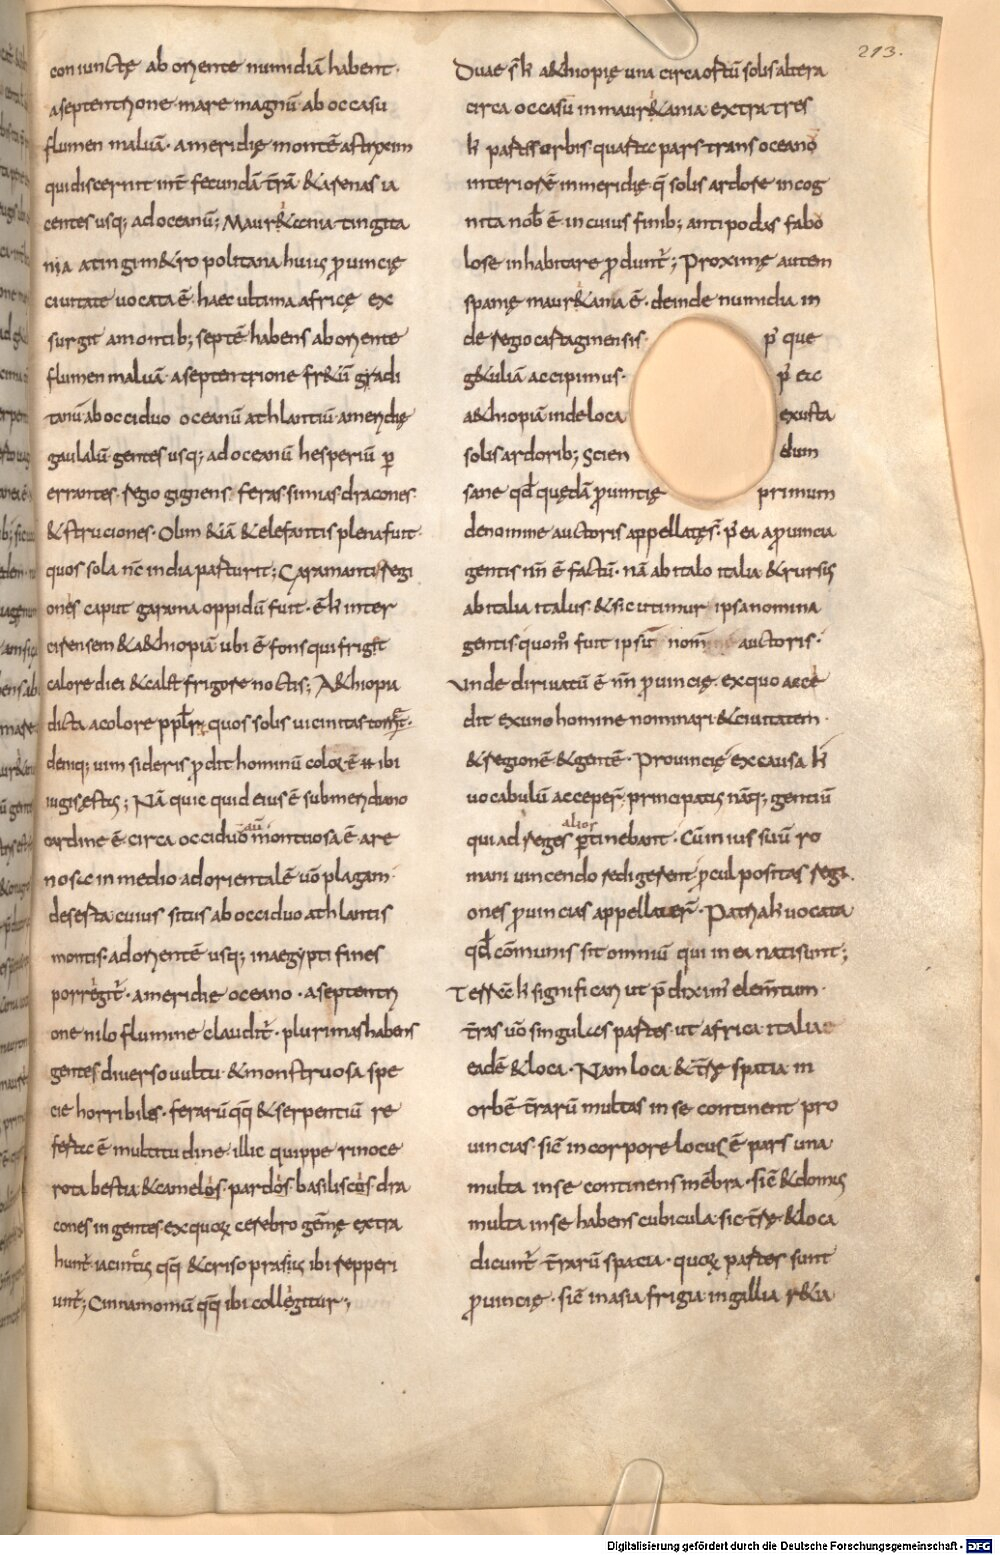 213.
coniunctę ab oriente numidiā habent.
a septentrione mare magnū ab occasu
flumen maluā. a meridię montē astryxim
qui discernit int̄ fecundā t̄rā & arenas ia
centes usq; ad oceanū; Maur&ania tingita
nia a tingi m&ropolitana huius ꝓuincię
ciuitate uocata ē. haec ultima africę ex
surgit a montib; septē habens ab oriente
flumen maluā. a septentrione fr&ū gadi
tanū ab occiduo oceanū athlantiū a meridię
gaulalū gentes usq; ad oceanū hesperiū ꝑ
errantes. regio gignens feras simias dracones
& struciones. Olim &iā & elefantis plena fuit.
quos sola nc̄ india parturit; Garamanti regi
ones caput garama oppidū fuit. ē k inter
cirensem & a&hiopiā ubi ē fons qui friget
calore diei & calet frigore noctis; A&hiopia
dicta a colore pplr̄. quos solis uicinitas
deniq; uim sideris ꝓdit hominū coloꝝ ē ibi
iugis ęstus; Nā quicquid eius ē sub meridiano
cardine ē. circa occiduō aū montuosa ē are
nosa in medio ad orientalē uō plagam.
deserta cuius situs ab occiduo athlantis
montis. ad orientē usq; in aegypti fines
porrègit̄. a meridie oceano. a septentri
one nilo flumine claudit̄. plurimas habens
gentes diuerso uultu & monstruosa spe
cie horribiles. ferarū qq̄ & serpentiū re
ferta ē multitudine. illic quippe rinoce
rota bestia & camelos. pardos. basiliscos. dra
cones ingentes ex quoꝝ cerebro gēmę extra
hunt̄ iacintus qq̄ & crisoprassus ibi repperi
unt̄; Cinnamomū qq̄ ibi collègitur;
Duae s̄ k a&hiopię una circa ortū solis altera
circa occasū in maur&ania extra tres
k partes orbis quarta pars trans oceanō
interiorē in meridię q̄ solis ardore incog
nita nob̄ ē in cuius finib; antipodas fabo
lose inhabitare ꝓdunt̄; Proximę autem
spanię maur&ania ē. deinde numidia in
de regio cartaginensis. p̄ que
g&uliā accipimus. p̄ ea
a&hiopiā inde loca exusta
solis ardorib; Scien dum
sane qd̄ quędā ꝓuincię primum
de nomine auctoris appellatę s̄. p̄ ea a ꝓuincia
gentis nn̄ ē factū. nā ab italo italia & rursus
ab italia italus. & sic utimur ipsa nomina
gentis. quom̄ fuit ipsū nomē auctoris.
Vnde diriuatū ē nn̄ ꝓuincię. ex quo acce
dit ex uno homine nominari & ciuitatem.
& regionē & gentē. Prouincię ex causa k
uocabulū acceper̄. principatus nāq; gentiū
qui ad reges alios ꝑtinebant. Cū in ius suū ro
mani uincendo redigerent ꝓcul positas regi
ones ꝓuincias appellauer̄. Patria k uocata
qd̄ cōmunis sit omniū qui in ea nati sunt;
Terrā k significari ut p̄diximꝰ elem̄tum.
t̄ras uō singulas partes. ut africa italia
eadē & loca. Nam loca & t̄rę spatia in
orbē t̄rarū multas in se continent pro
uincias. sic̄ in corpore locus ē pars una
multa in se continens mēbra. sic̄ & domus
multa in se habens cubicula. sic t̄rę & loca
dicunt̄ t̄rarū spacia. quoꝝ partes sunt
ꝓuincię. sic̄ in asia frigia in gallia r&ia
Digitalisierung gefördert durch die Deutsche Forschungsgemeinschaft - DFG